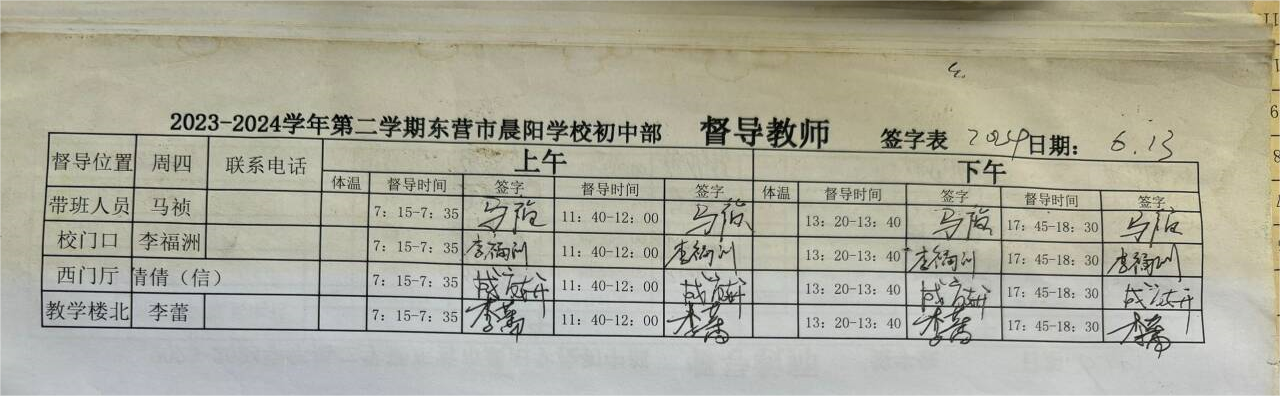 2023-2024学年第二学期东营市晨阳学校初中部 督导教师 签字表 2024日期: 6.13
督导位置 周四 联系电话 上午 下午
体温 督导时间 签字 督导时间 签字 体温 督导时间 签字 督导时间 签字
带班人员 马祯 7: 15-7: 35 马祯 11: 40-12: 00 马祯 13: 20-13: 40 马祯 17: 45-18: 30 马祯
校门口 李福洲 7: 15-7: 35 李福洲 11: 40-12: 00 李福洲 13: 20-13: 40 李福洲 17: 45-18: 30 李福洲
西门厅 倩倩（信） 7: 15-7: 35 11: 40-12: 00 13: 20-13: 40 17: 45-18: 30
教学楼北 李蕾 7: 15-7: 35 李蕾 11: 40-12: 00 李蕾 13: 20-13: 40 李蕾 17: 45-18: 30 李蕾